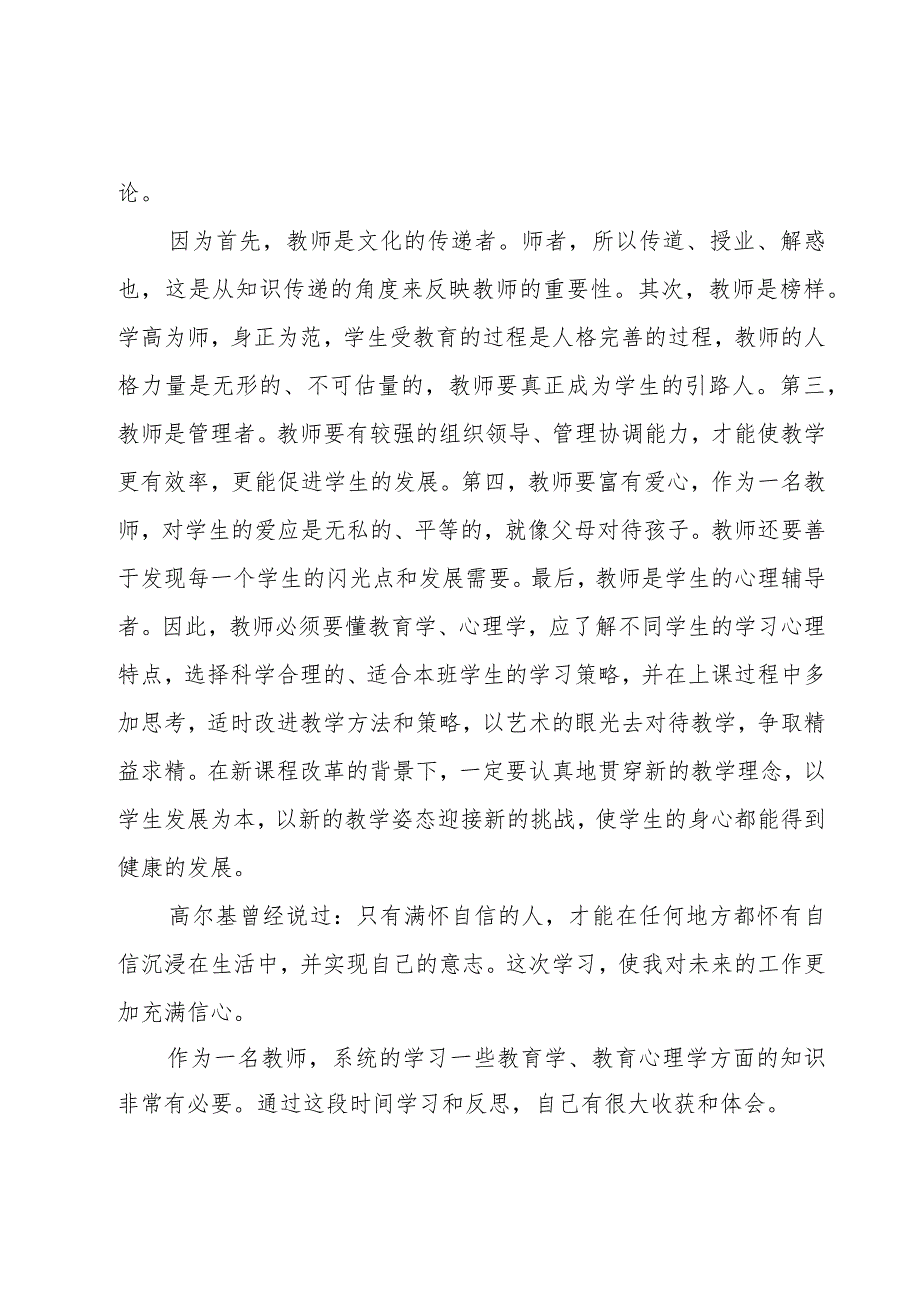 论。
因为首先，教师是文化的传递者。师者，所以传道、授业、解惑
也，这是从知识传递的角度来反映教师的重要性。其次，教师是榜样。
学高为师，身正为范，学生受教育的过程是人格完善的过程，教师的人
格力量是无形的、不可估量的，教师要真正成为学生的引路人。第三，
教师是管理者。教师要有较强的组织领导、管理协调能力，才能使教学
更有效率，更能促进学生的发展。第四，教师要富有爱心，作为一名教
师，对学生的爱应是无私的、平等的，就像父母对待孩子。教师还要善
于发现每一个学生的闪光点和发展需要。最后，教师是学生的心理辅导
者。因此，教师必须要懂教育学、心理学，应了解不同学生的学习心理
特点，选择科学合理的、适合本班学生的学习策略，并在上课过程中多
加思考，适时改进教学方法和策略，以艺术的眼光去对待教学，争取精
益求精。在新课程改革的背景下，一定要认真地贯穿新的教学理念，以
学生发展为本，以新的教学姿态迎接新的挑战，使学生的身心都能得到
健康的发展。
高尔基曾经说过：只有满怀自信的人，才能在任何地方都怀有自
信沉浸在生活中，并实现自己的意志。这次学习，使我对未来的工作更
加充满信心。
作为一名教师，系统的学习一些教育学、教育心理学方面的知识
非常有必要。通过这段时间学习和反思，自己有很大收获和体会。